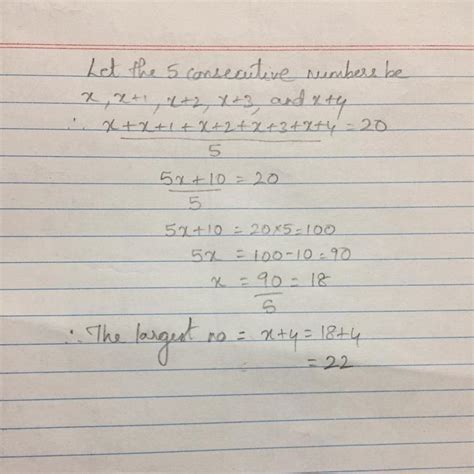 Let the 5 consecutive numbers be
x, x+1, x+2, x+3, and x+4
∴ x+x+1+x+2+x+3+x+4 = 20
5
5x+10 = 20
5
5x+10 = 20×5=100
5x = 100-10=90
x = 90 = 18
5
∴ The largest no = x+4 = 18+4
= 22